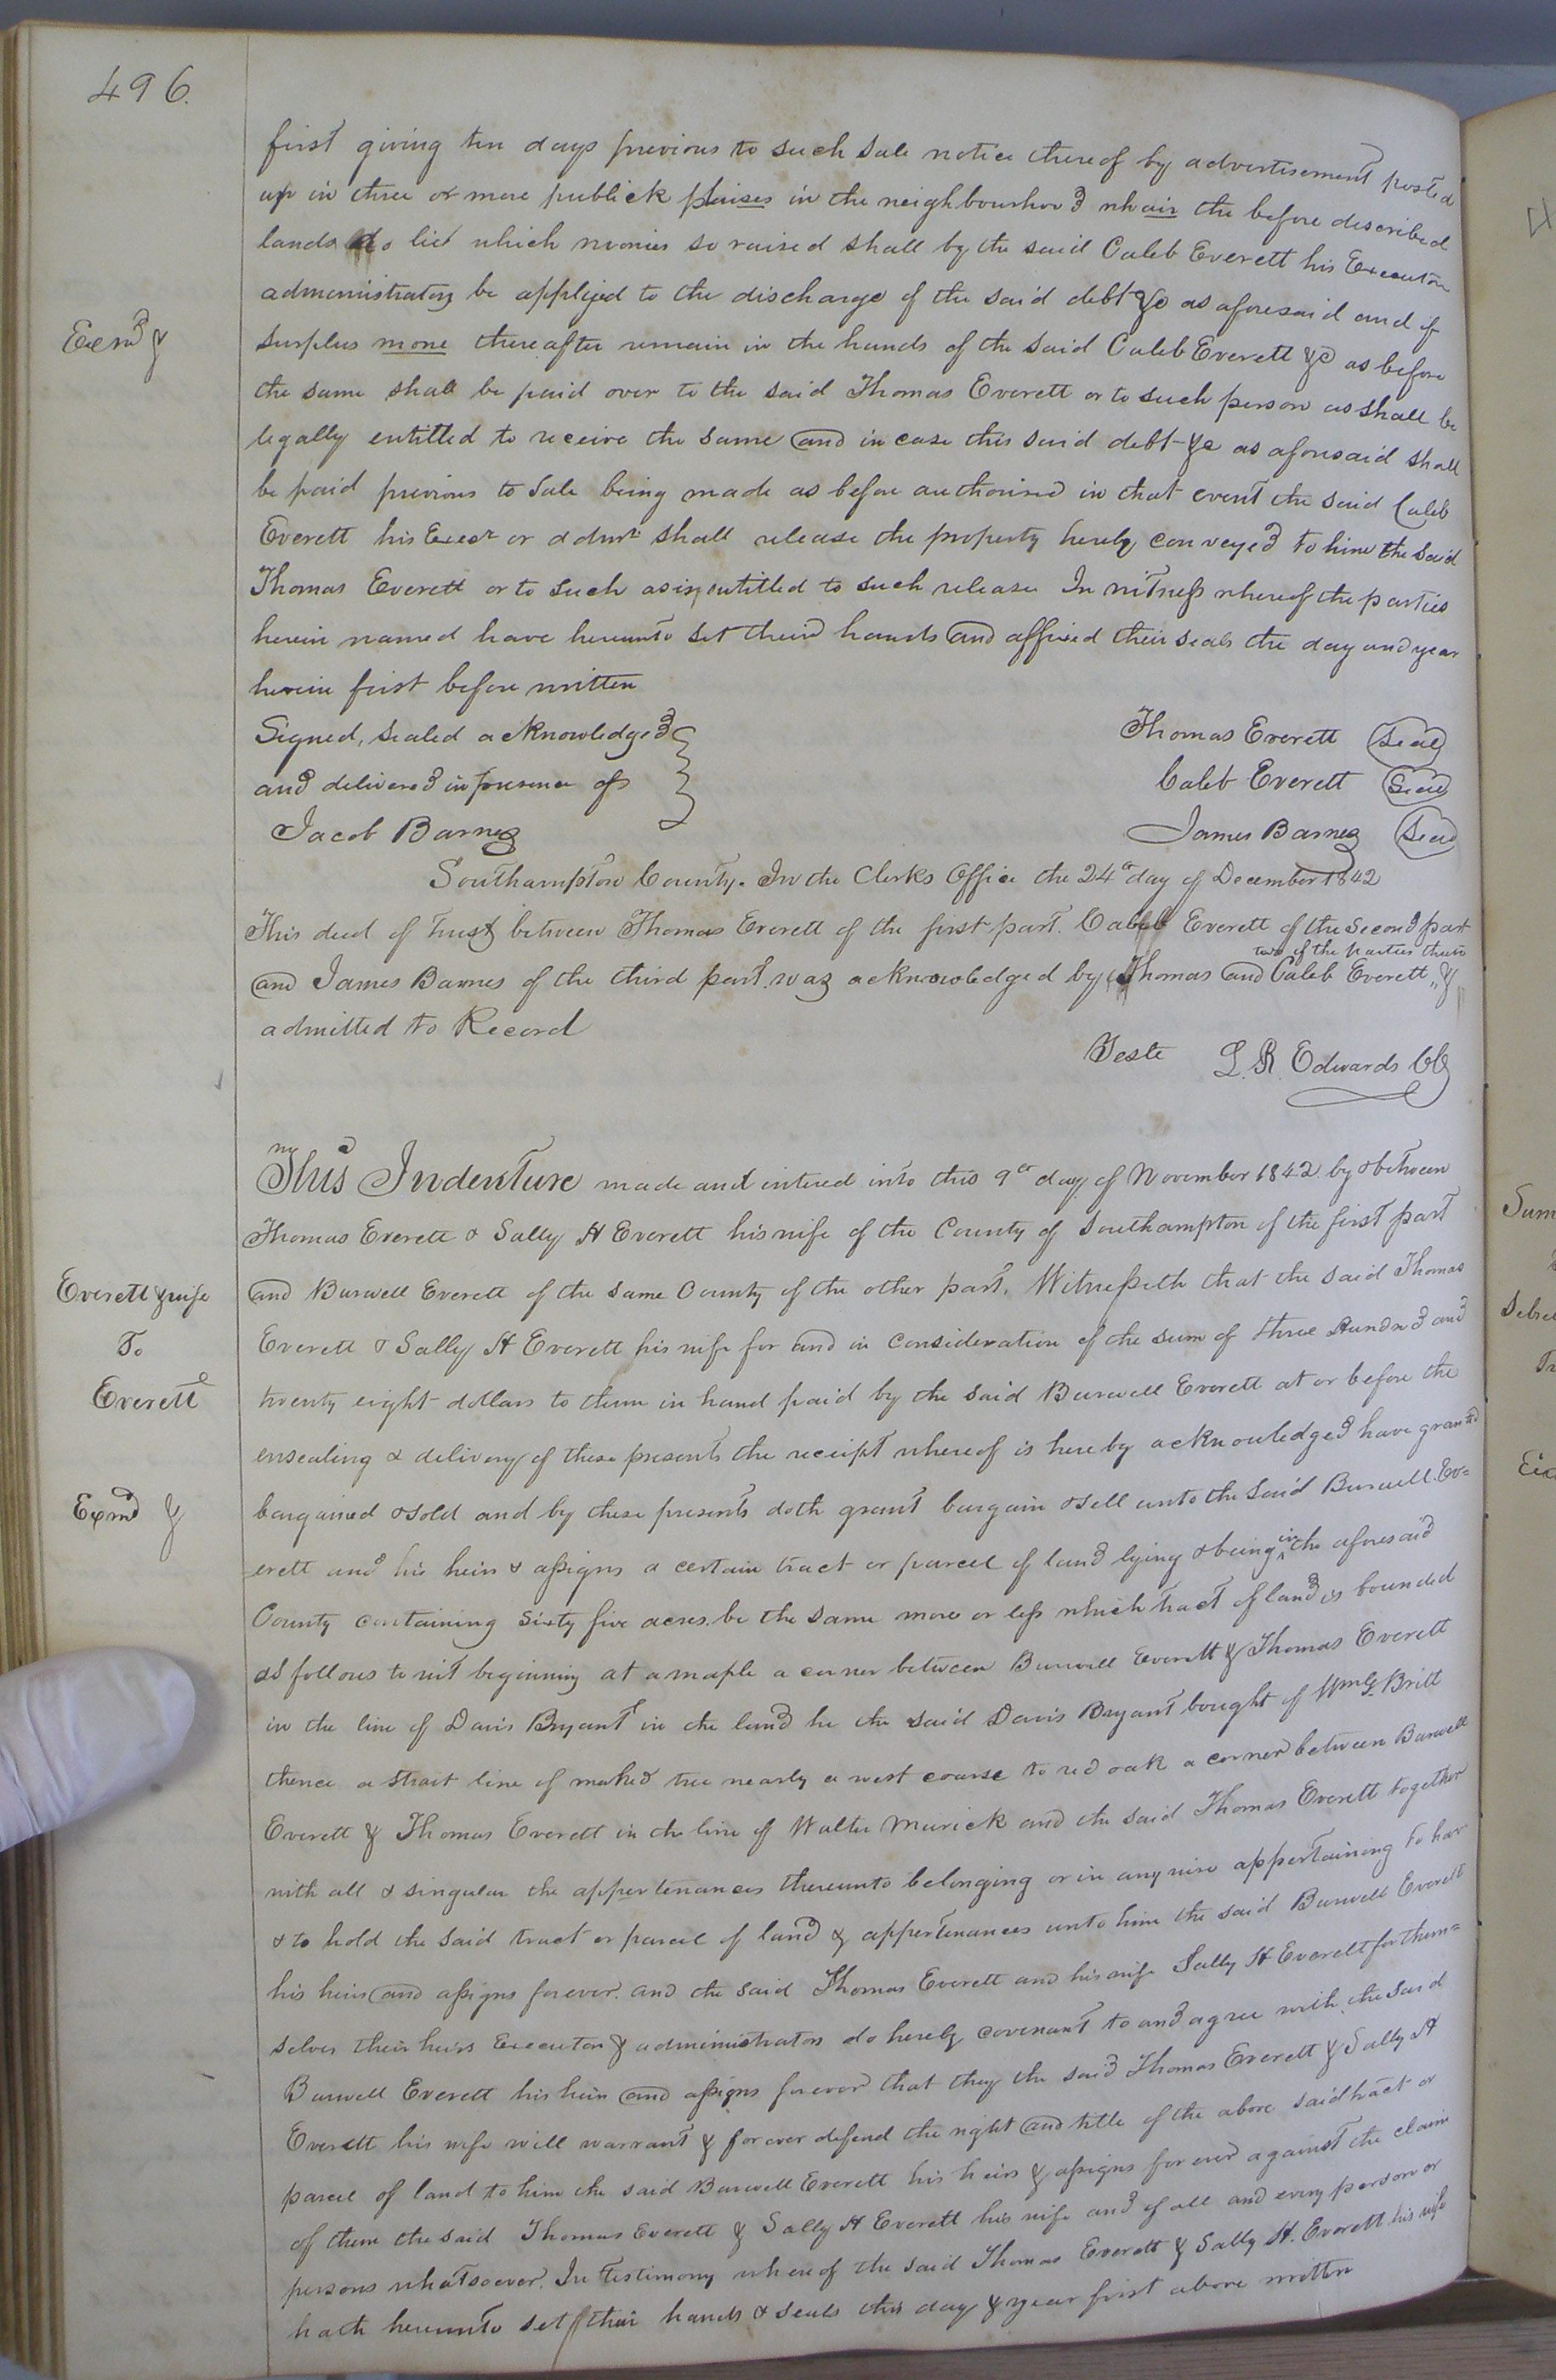 496.
first giving ten days previous to such sale notice thereof by advertisement posted
up in three or more publick plaises in the neighbourhood whair the before described
lands do lie which monies so raised shall by the said Caleb Everett his Executor
administrators be applyed to the discharge of the said debt &c as aforesaid and if
Exmd &
surplus mone thereafter remain in the hands of the said Caleb Everett &c as before
the same shall be paid over to the said Thomas Everett or to such person as shall be
legally entitled to receive the same and in case this said debt &c as aforesaid shall
be paid previous to sale being made as before authorised in that event the said Caleb
Everett his Execr or admr shall release the property hereby conveyed to him the said
Thomas Everett or to such as is entitled to such release In witness whereof the parties
herein named have hereunto set their hands and affixed their seals the day and year
herein first before written
Signed, sealed acknowledged
and delivered in presence of
Jacob Barnes
Thomas Everett (Seal)
Caleb Everett (Seal)
James Barnes (Seal)
Southampton County. In the Clerks Office the 24th day of December 1842
This deed of trust between Thomas Everett of the first part. Caleb Everett of the second part
and James Barnes of the third part was acknowledged by Thomas and Caleb Everett two of the parties thereto &
admitted to Record
Teste L. R. Edwards CC
This Indenture made and intered into this 9th day of November 1842 by & between
Thomas Everett & Sally H Everett his wife of the County of Southampton of the first part
Everett & wife
To
Everett
and Burwell Everett of the same County of the other part. Witnesseth that the said Thomas
Everett & Sally H Everett his wife for and in consideration of the sum of three Hundred and
twenty eight dollars to them in hand paid by the said Burwell Everett at or before the
ensealing & delivery of these presents the receipt whereof is hereby acknowledged have granted
Exmd &
bargained & sold and by these presents doth grant bargain & sell unto the said Burwell Ev=
erett and his heirs & assigns a certain tract or parcel of land lying & being in the aforesaid
County containing Sixty five acres. be the same more or less which tract of land is bounded
as follows to wit beginning at a maple a corner between Burwell Everett & Thomas Everett
in the line of Davis Bryant in the land he the said Davis Bryant bought of Wm G Britt
thence a strait line of maked tree nearly a west course to red oak a corner between Burwell
Everett & Thomas Everett in the line of Walter Murick and the said Thomas Everett together
with all & singular the appertenances thereunto belonging or in any wise appertaining to have
& to hold the said tract or parcel of land & appertenances unto him the said Burwell Everett
his heirs and assigns forever. and the said Thomas Everett and his wife Sally H Everett for them=
selves their heirs Executors & administrators do hereby covenant to and agree with the said
Burwell Everett his heirs and assigns forever that they the said Thomas Everett & Sally H
Everett his wife will warrant & forever defend the right and title of the above said tract or
parcel of land to him the said Burwell Everett his heirs & assigns forever against the claim
of them the said Thomas Everett & Sally H Everett his wife and of all and every person or
persons whatsoever. In testimony whereof the said Thomas Everett & Sally H. Everett his wife
hath hereunto set their hands & seals this day & year first above written